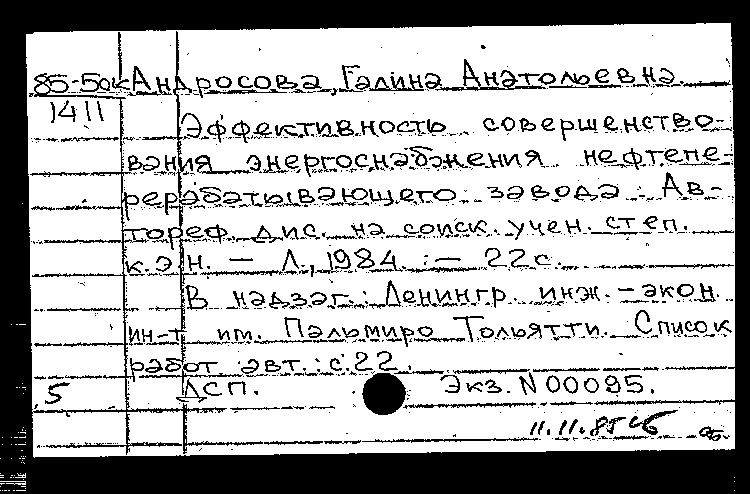 85-50к Андросова, Галина Анатольевна.
1411
Эффективность совершенство-
вания энергоснабжения нефтепе-
рерабатывающего завода: Ав-
тореф. дис. на соиск. учен. степ.
к.э.н. — Л., 1984. — 22 с.
В надзаг.: Ленингр. инж.-экон
ин-т им. Пальмиро Тольятти. Список
работ авт.: с.22.
5 ДСП. Экз. N 00095.
11.11.85